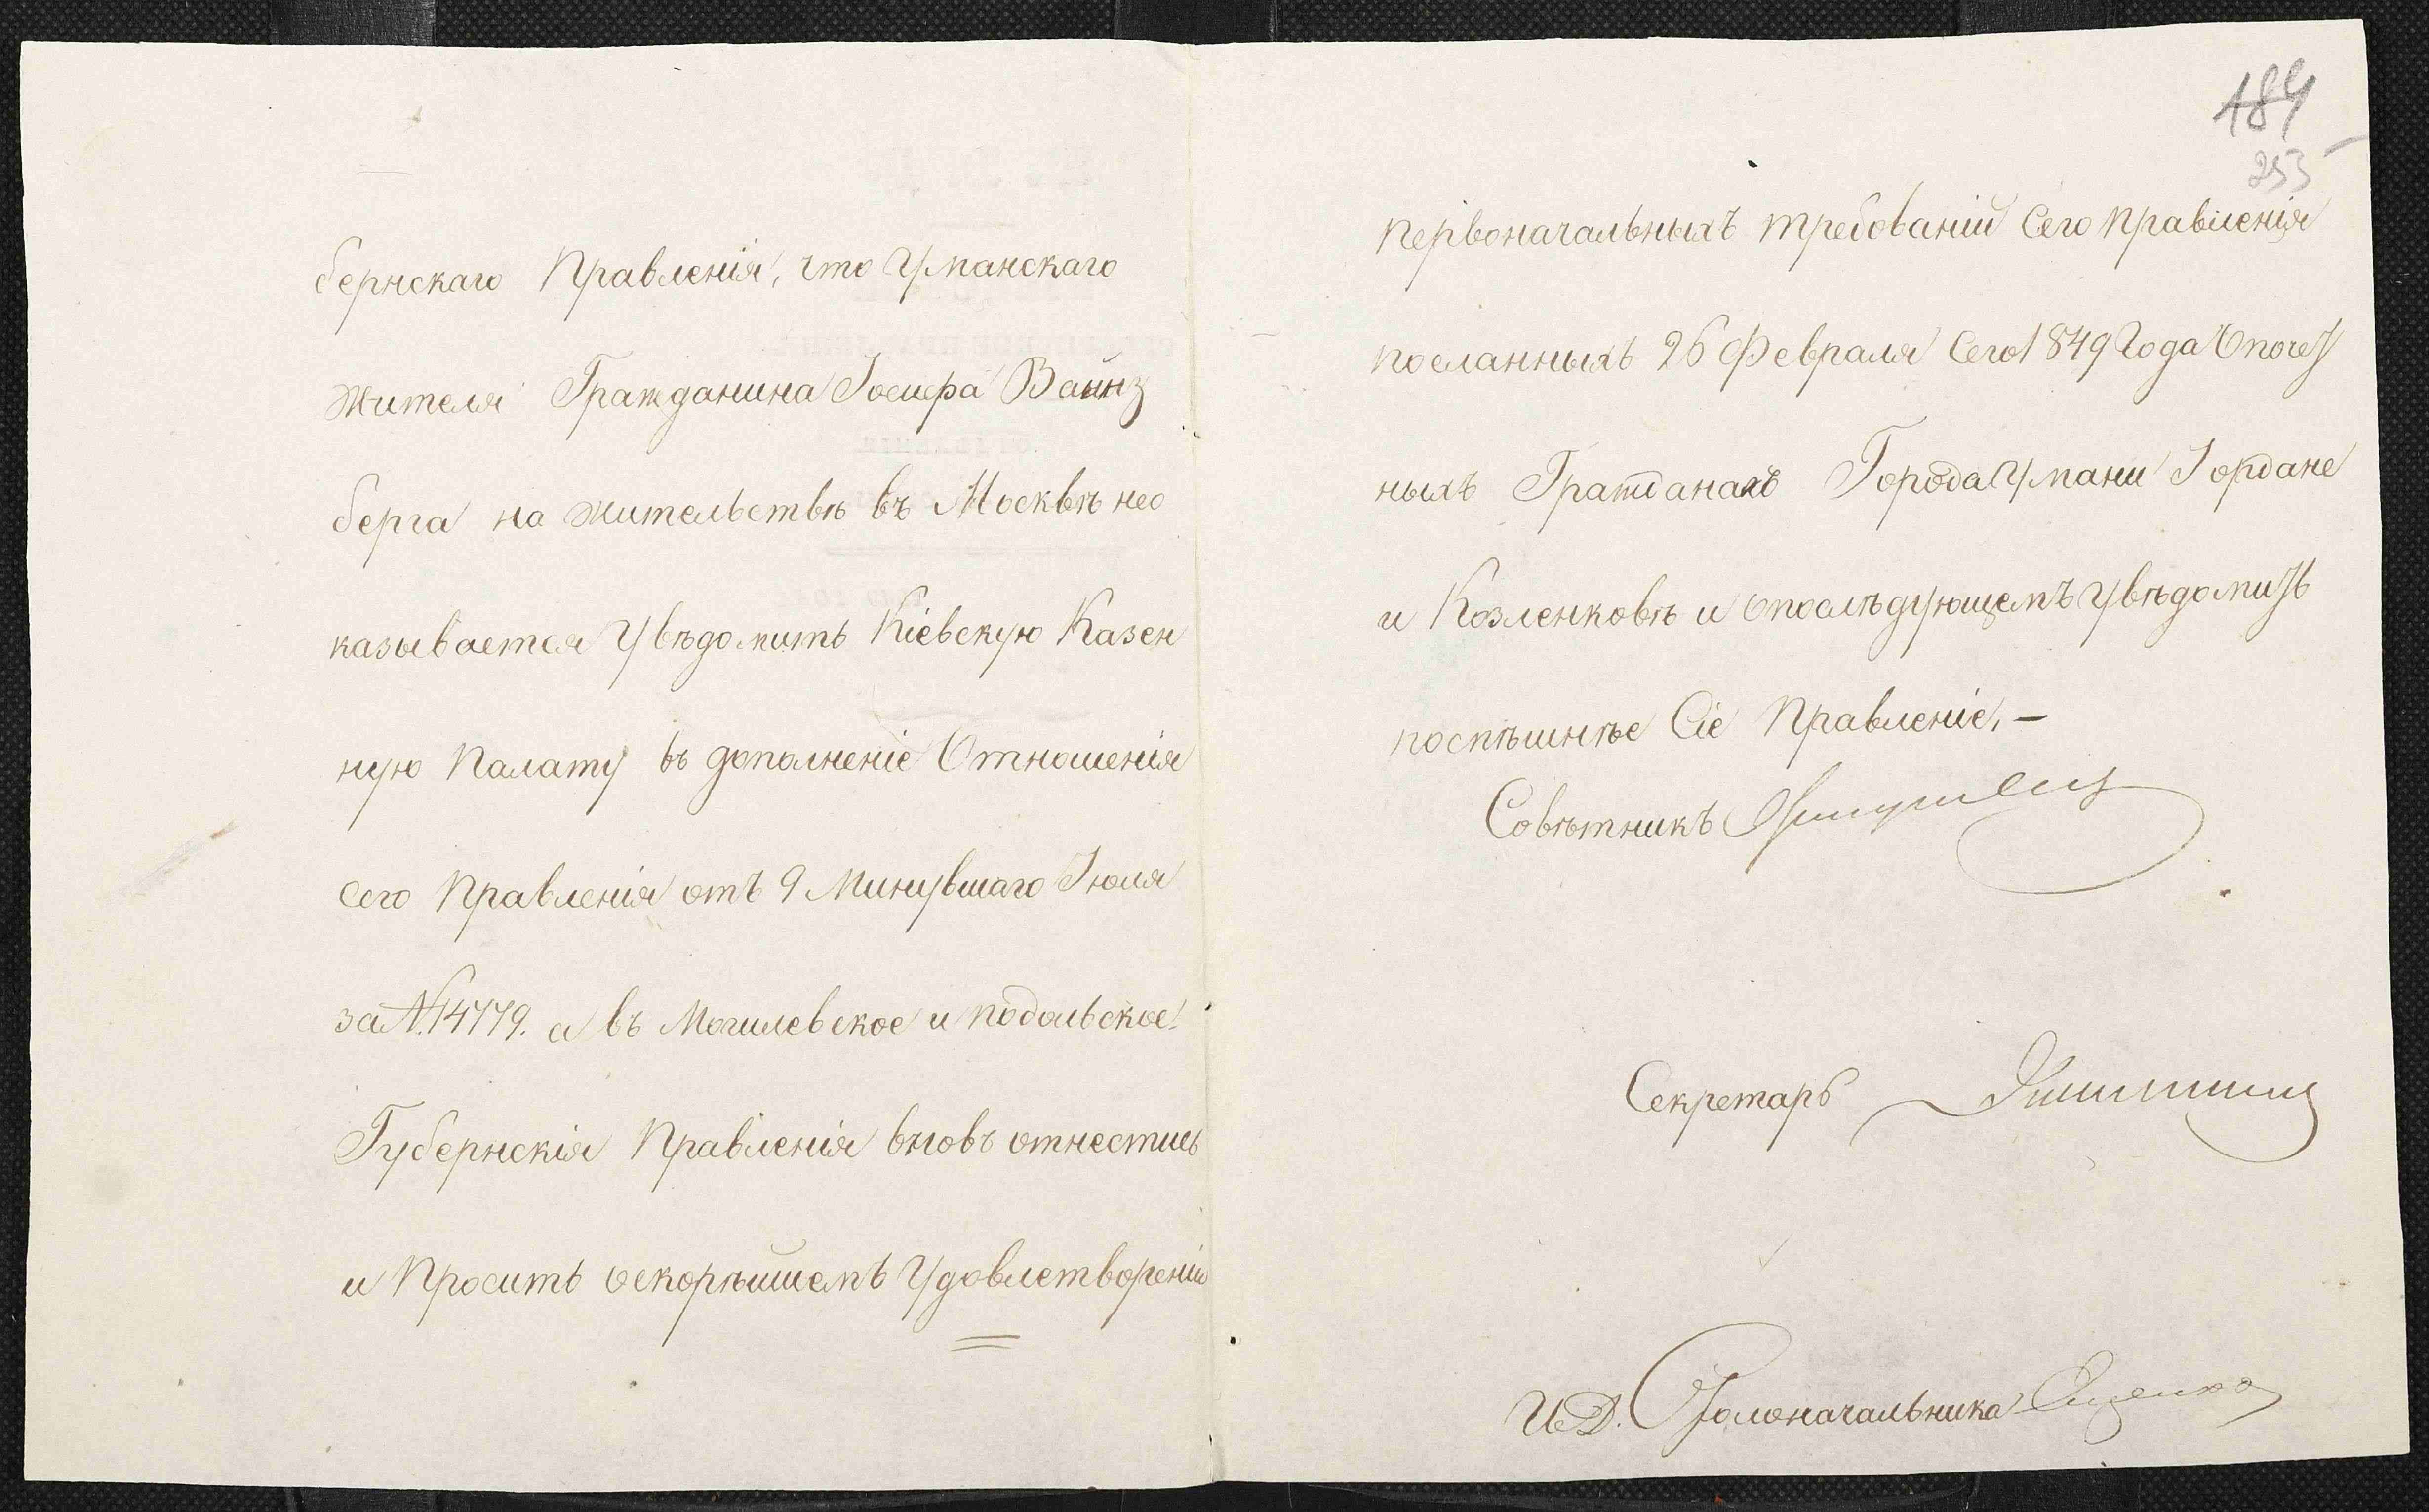 бернскаго Правленія, что Уманскаго
жителя Гражданина Іосифа Вайнз
берга на жительствѣ въ Москвѣ нео
казывается Увѣдомить Кіевскую Казен
ную Палату въ дополненіе Отношенія
сего Правленія отъ 9 Минувшаго Іюля
за №14779. а въ Могилевское и Подольское
Губернскія Правленія вновь отнестись
и Просить оскорѣйшемъ Удовлетвореніи
184
253
первоначальныхъ требованій Сего Правленія
посланныхъ 26 Февраля Сего 1849 Года Опочет
ныхъ Гражданахъ Города Умани Іордане
и Козленковѣ и опослѣдующемъ Увѣдомить
поспѣшнѣе Сіе Правленіе, —
Совѣтникъ
Секретарь
И.Д. Столоначальника